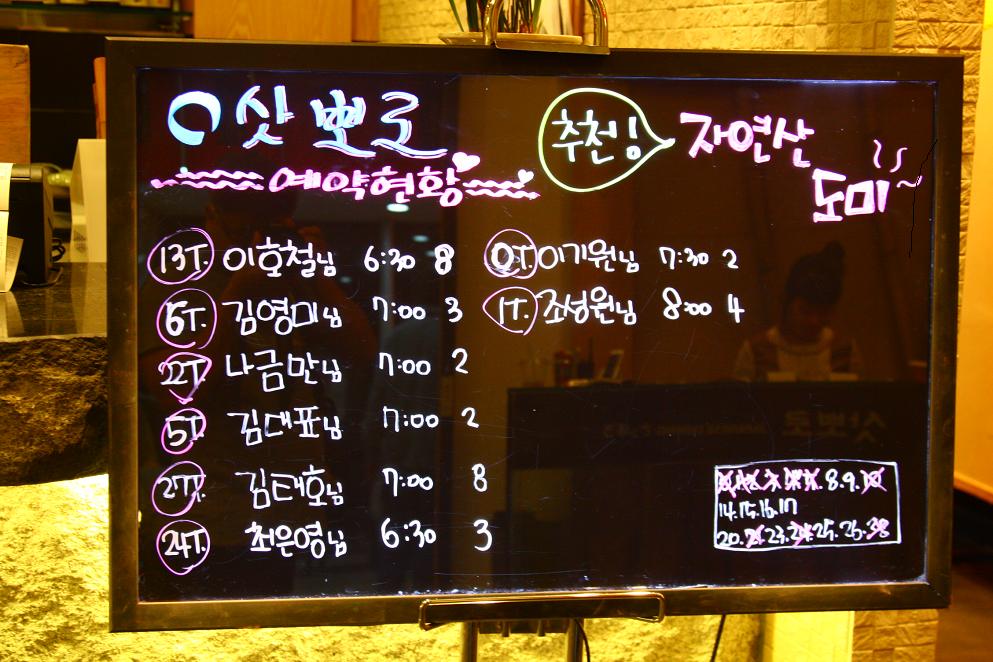 삿뽀로
예약현황
추천님 자연산
도미
13T. 이호철님 6:30 8
6T. 김영미님 7:00 3
22T. 나금만님 7:00 2
5T. 김대표님 7:00 2
27T. 김태호님 7:00 8
24T. 최은영님 6:30 3
이기원님 7:30 2
1T. 조성원님 8:00 4
8.9.
14.15.16.17
20. 23. 25. 26.